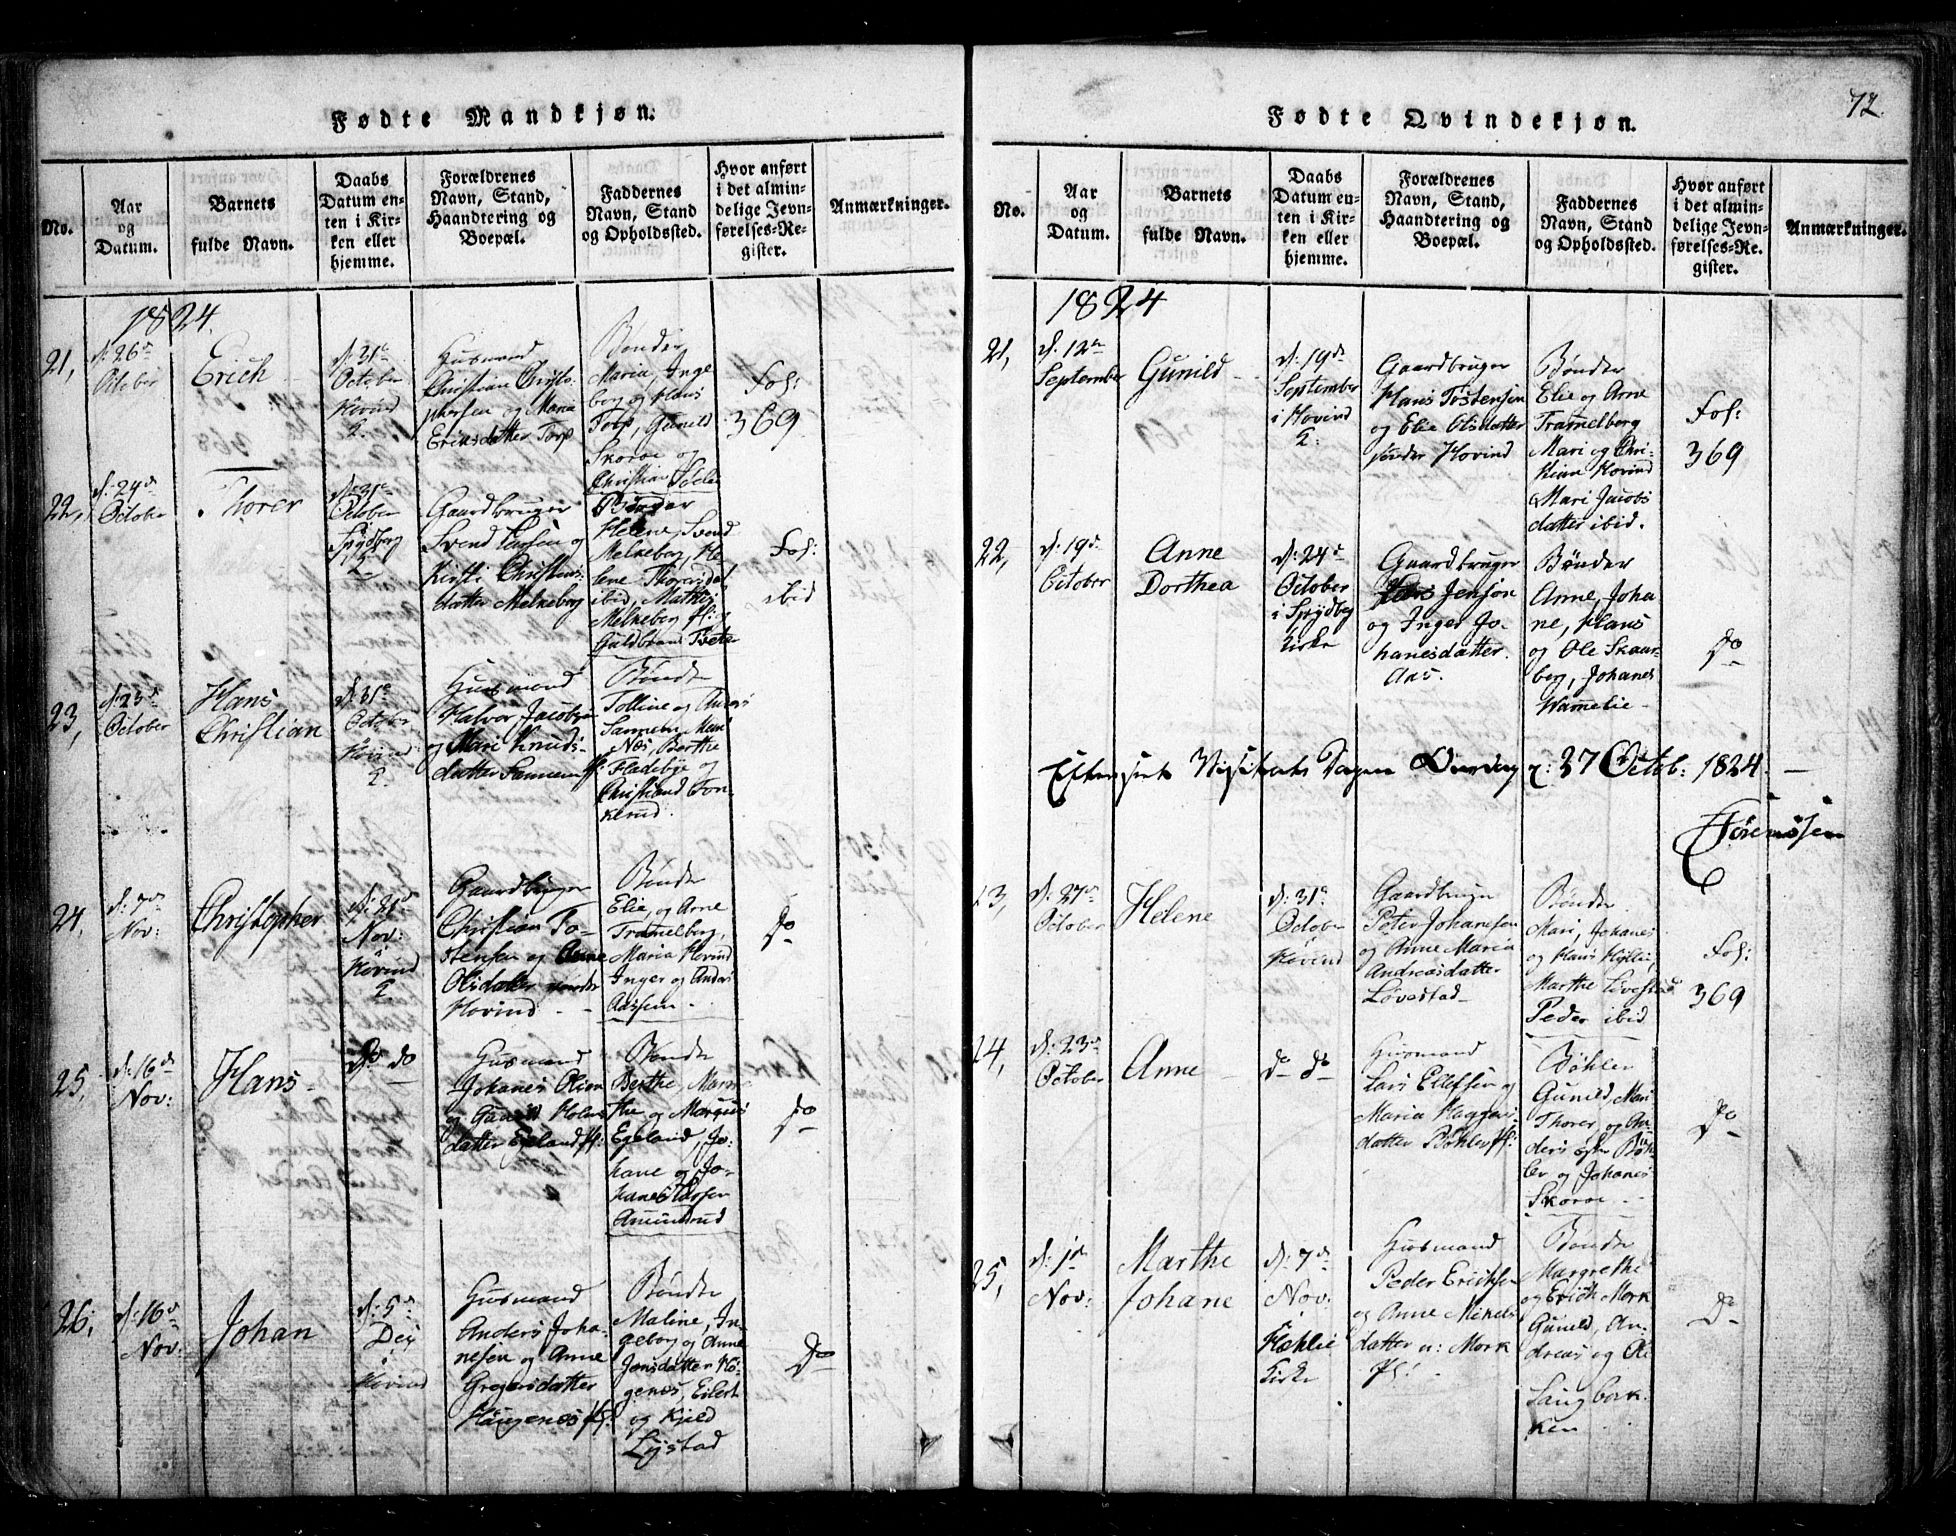 Fødte Mandkjøn.
No.
Aar
og
Datum.
Barnets
fulde Navn.
Daabs
Datum en-
ten i Kir-
ken eller
hjemme.
Forældrenes
Navn, Stand,
Haandtering og
Boepæl.
Faddernes
Navn, Stand
og Opholdssted.
Hvor anført
i det almin-
delige Jevn-
førelses-Re-
gister.
Anmærkninger.
1824.
21,
d: 26d
October
Erich
d: 31te
October
Hovind
Huusmand
Christian Christo-
phersen og Maria
Ericsdatter Torp
Bønder
Maria, Inge
borg og Hans
Torp, Gunild
Skorøe og
Christian
Fol:
369
22,
d: 24d
October
Thorer
d: 31te
October
Spydberg
Gaardbruger
Svend Larsen og
Kirsti Christens-
datter Melkeberg
Bønder
Helene, Svend
Melkeberg, He
lene Thorersdat
ibid, Mathis
Melkeberg pl:
Guldbrand Tvete
Fol:
ibid
23,
d: 23d
October
Hans
Christian
d: 31te
October
Hovind
Huusmand
Halvor Jacobsen
og Mari Knuds-
datter
Bønder
Tolline og
Næs, Berthe
Fladebye og
Christian Fon-
kerud.
24,
d: 7de
Nov:
Christopher
d: 21d
Nov:
i
Hovind
Gaardbruger
Christian To-
stensen og Anne
Olsdatter søndre
Hovind
Bønder
Elie, og Arne
Tramelborg,
Maria Hovind
Inger og Anders
Aassen
Do
25,
d: 16d
Nov:
Hans
Do do
Huusmand
Johanes Olsen
og Gunild Holm
datter Egeland pl:
Bønder
Berthe, Mar
the og Margus
Egeland, Jo-
hane og Jo-
hanes Larsen
Amundrud
Do
26,
d: 16d
Nov:
Johan
d: 5d
Dec
i
Hovind
Huusmand
Anders Joha-
nesen og Anne
Gregersdatter
Haugenes pl:
Bønder
Maline, In
geborg og Anne
Jensdatter Hø-
genes, Eilert
og Kjeld
Lystad
Do
72.
Fødte Qvindekjøn.
No.
Aar
og
Datum.
Barnets
fulde Navn.
Daabs
Datum en-
ten i Kir-
ken eller
hjemme.
Forældrenes
Navn, Stand,
Haandtering og
Boepæl.
Faddernes
Navn, Stand
og Opholdssted.
Hvor anført
i det almin-
delige Jevn-
førelses-Re-
gister.
Anmærkninger.
1824
21,
d: 12te
September
Gunild
d: 19de
September
i Hovind
Gaardbruger
Hans Tostensen
og Elie Olsdatter
sønder Hovind
Bønder
Elie og Arne
Tramelborg
Mari og Chri-
stian Hovind
Mari Jacobs
datter ibid.
Fol:
369
22,
d: 19d
October
Anne
Dorthea
d: 24d
October
i Spydbg
Kirke
Gaardbruger
Jenson
og Inger Jo-
hanesdatter
Aas.
Bønder
Anne, Joha
ne, Hans
og Ole Skaar-
berg, Johanes
Wamelie
Do
Efterseet Visitats Dagen Onsdag d: 27 Octob: 1824
Sørenssen
23,
d: 27de
October
Helene
d: 31te
October
Hovind
Gaardbruger
Peter Johansen
og Anne Maria
Andreasdatter
Løvestad
Bønder
Mari, Johanes
og Hans Hyllie,
Marthe Løvestad
Peder ibid
Fol:
369
24,
d: 23de
October
Anne
do do
Huusmand
Lars Ellefsen og
Maria Haagens
datter Bøhler pl:
Bøhler
Gunild, Mari
Thorer, og An
ders østre Bøh
ler og Johanes
Skorøe
Do
25,
d: 1d
Nov:
Marthe
Johane
d: 7de
Nov:
i
Hæhlie
Kirke
Huusmand
Peder Ericksen
og Anne Mikels
datter u: Mork
pl:
Bønder
Margrethe
og Erick Mork
Gunild, An-
dreas og Ole
Langbak-
ken
Do